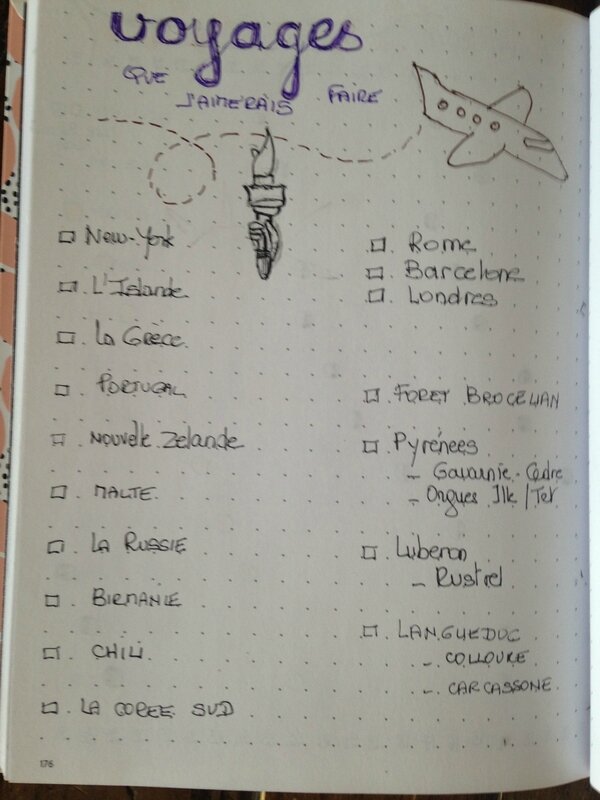 voyages
QUE
J'AIMERAIS FAIRE
New-York
L'Islande
La Grèce
PORTUGAL
NOUVElle Zelande
MALTE
LA RUSSIE
BIRMANIE
CHILI
LA COREE SUD
Rome
Barcelone
Londres
FORET BROCELIAN
Pyrénées
- Gavarnie - Cèdre
- Orgues Ille/Tet
Luberon
- Rustrel
LANGUEDOC
- COLLOURE
- CARCASSONE
176